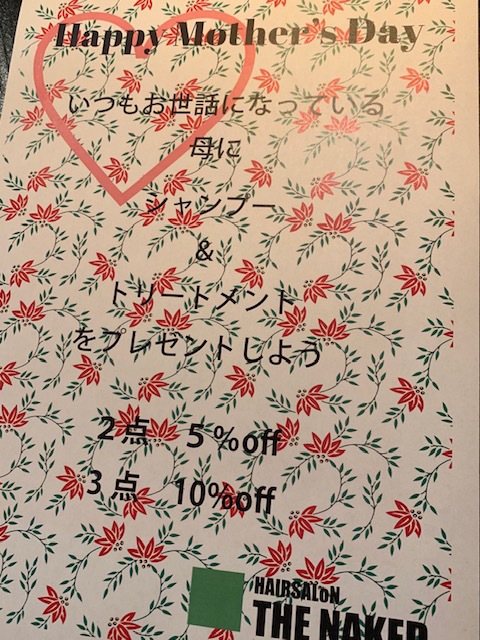 Happy Mother's Day
いつもお世話になっている
母に
シャンプー
&
トリートメント
をプレゼントしよう
2点 5%off
3点 10%off
HAIRSALoN
THE NAKED